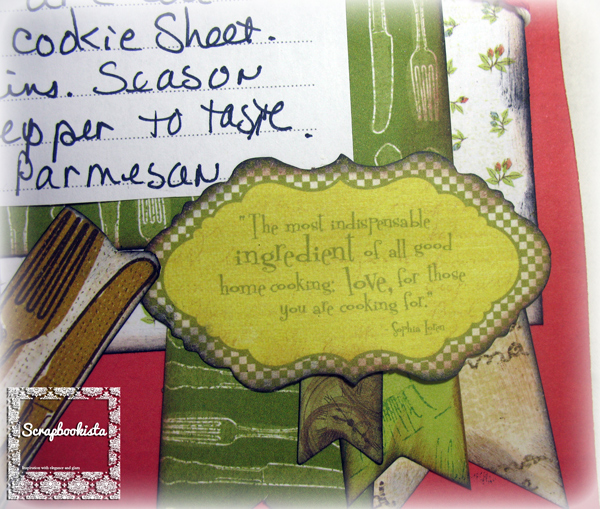 cookie Sheet.
ins. Season
epper to taste.
Parmesan
"The most indispensable
ingredient of all good
home cooking: love, for those
you are cooking for."
Sophia Loren
Scrapbookista
Inspiration with elegance and glam